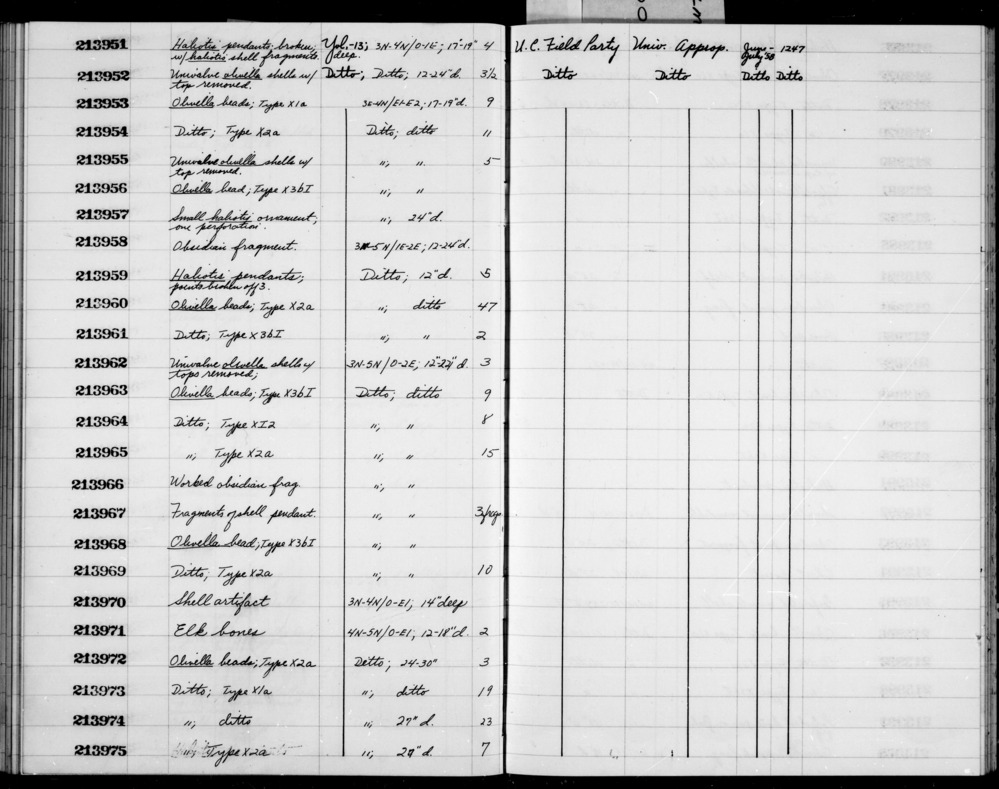 213951 Haliotis pendants, broken, Yol.-13; 3N-4N/0-1E; 17"-19" 4 U.C. Field Party Univ. Approp. June- 1247
w/ haliotis shell fragments. deep. July '50
213952 Univalve olivella shells w/ Ditto; Ditto; 12-24"d. 3½ Ditto Ditto Ditto Ditto
top removed.
213953 Olivella beads; Type X1a 3N-4N/E1-E2; 17-19"d. 9
213954 Ditto; Type X2a Ditto; ditto 11
213955 Univalve olivella shells w/ "; " 5
top removed.
213956 Olivella bead; Type X3bI "; "
213957 Small haliotis ornament; "; 24"d.
one perforation.
213958 Obsidian fragment. 3N-5N/1E-2E; 12-24"d.
213959 Haliotis pendants; Ditto; 12"d. 5
points broken off 3.
213960 Olivella beads; Type X2a "; ditto 47
213961 Ditto; Type X3bI "; " 2
213962 Univalve olivella shells w/ 3N-5N/0-2E; 12"-24"d. 3
tops removed;
213963 Olivella beads; Type X3bI Ditto; ditto 9
213964 Ditto; Type XI2 "; " 8
213965 "; Type X2a "; " 15
213966 Worked obsidian frag. "; "
213967 Fragments of shell pendant. "; " 3 frags
213968 Olivella bead; Type X3bI "; "
213969 Ditto; Type X2a "; " 10
213970 Shell artifact 3N-4N/0-E1; 14" deep
213971 Elk bones 4N-5N/0-E1; 12-18"d. 2
213972 Olivella beads; Type X2a Ditto; 24-30" 3
213973 Ditto; Type X1a "; ditto 19
213974 "; ditto "; 27"d. 23
213975 Type X2a "; 27"d. 7